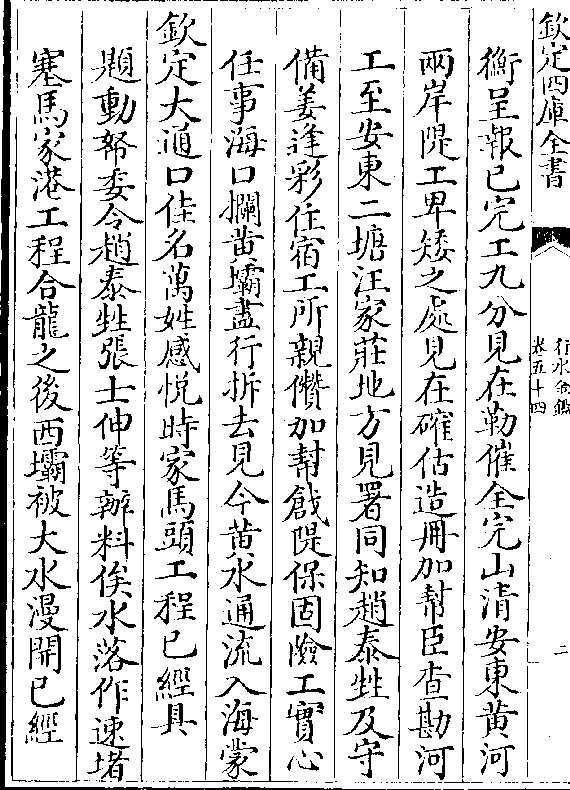 欽定四庫全書
行水金鑑
卷五十四
二
衡呈報已完工九分見在勒催全完山清安東黄河
兩岸隄工卑矮之處見在確估造冊加幫臣查勘河
工至安東二塘汪家莊地方見署同知趙泰甡及守
備姜逢彩住宿工所親儹加幫戧隄保固險工實心
任事海口攔黄壩盡行拆去見今黄水通流入海蒙
欽定大通口佳名萬姓感悦時家馬頭工程已經具
題動帑委令趙泰甡張士伸等辦料俟水落作速堵
塞馬家港工程合龍之後西壩被大水漫開已經